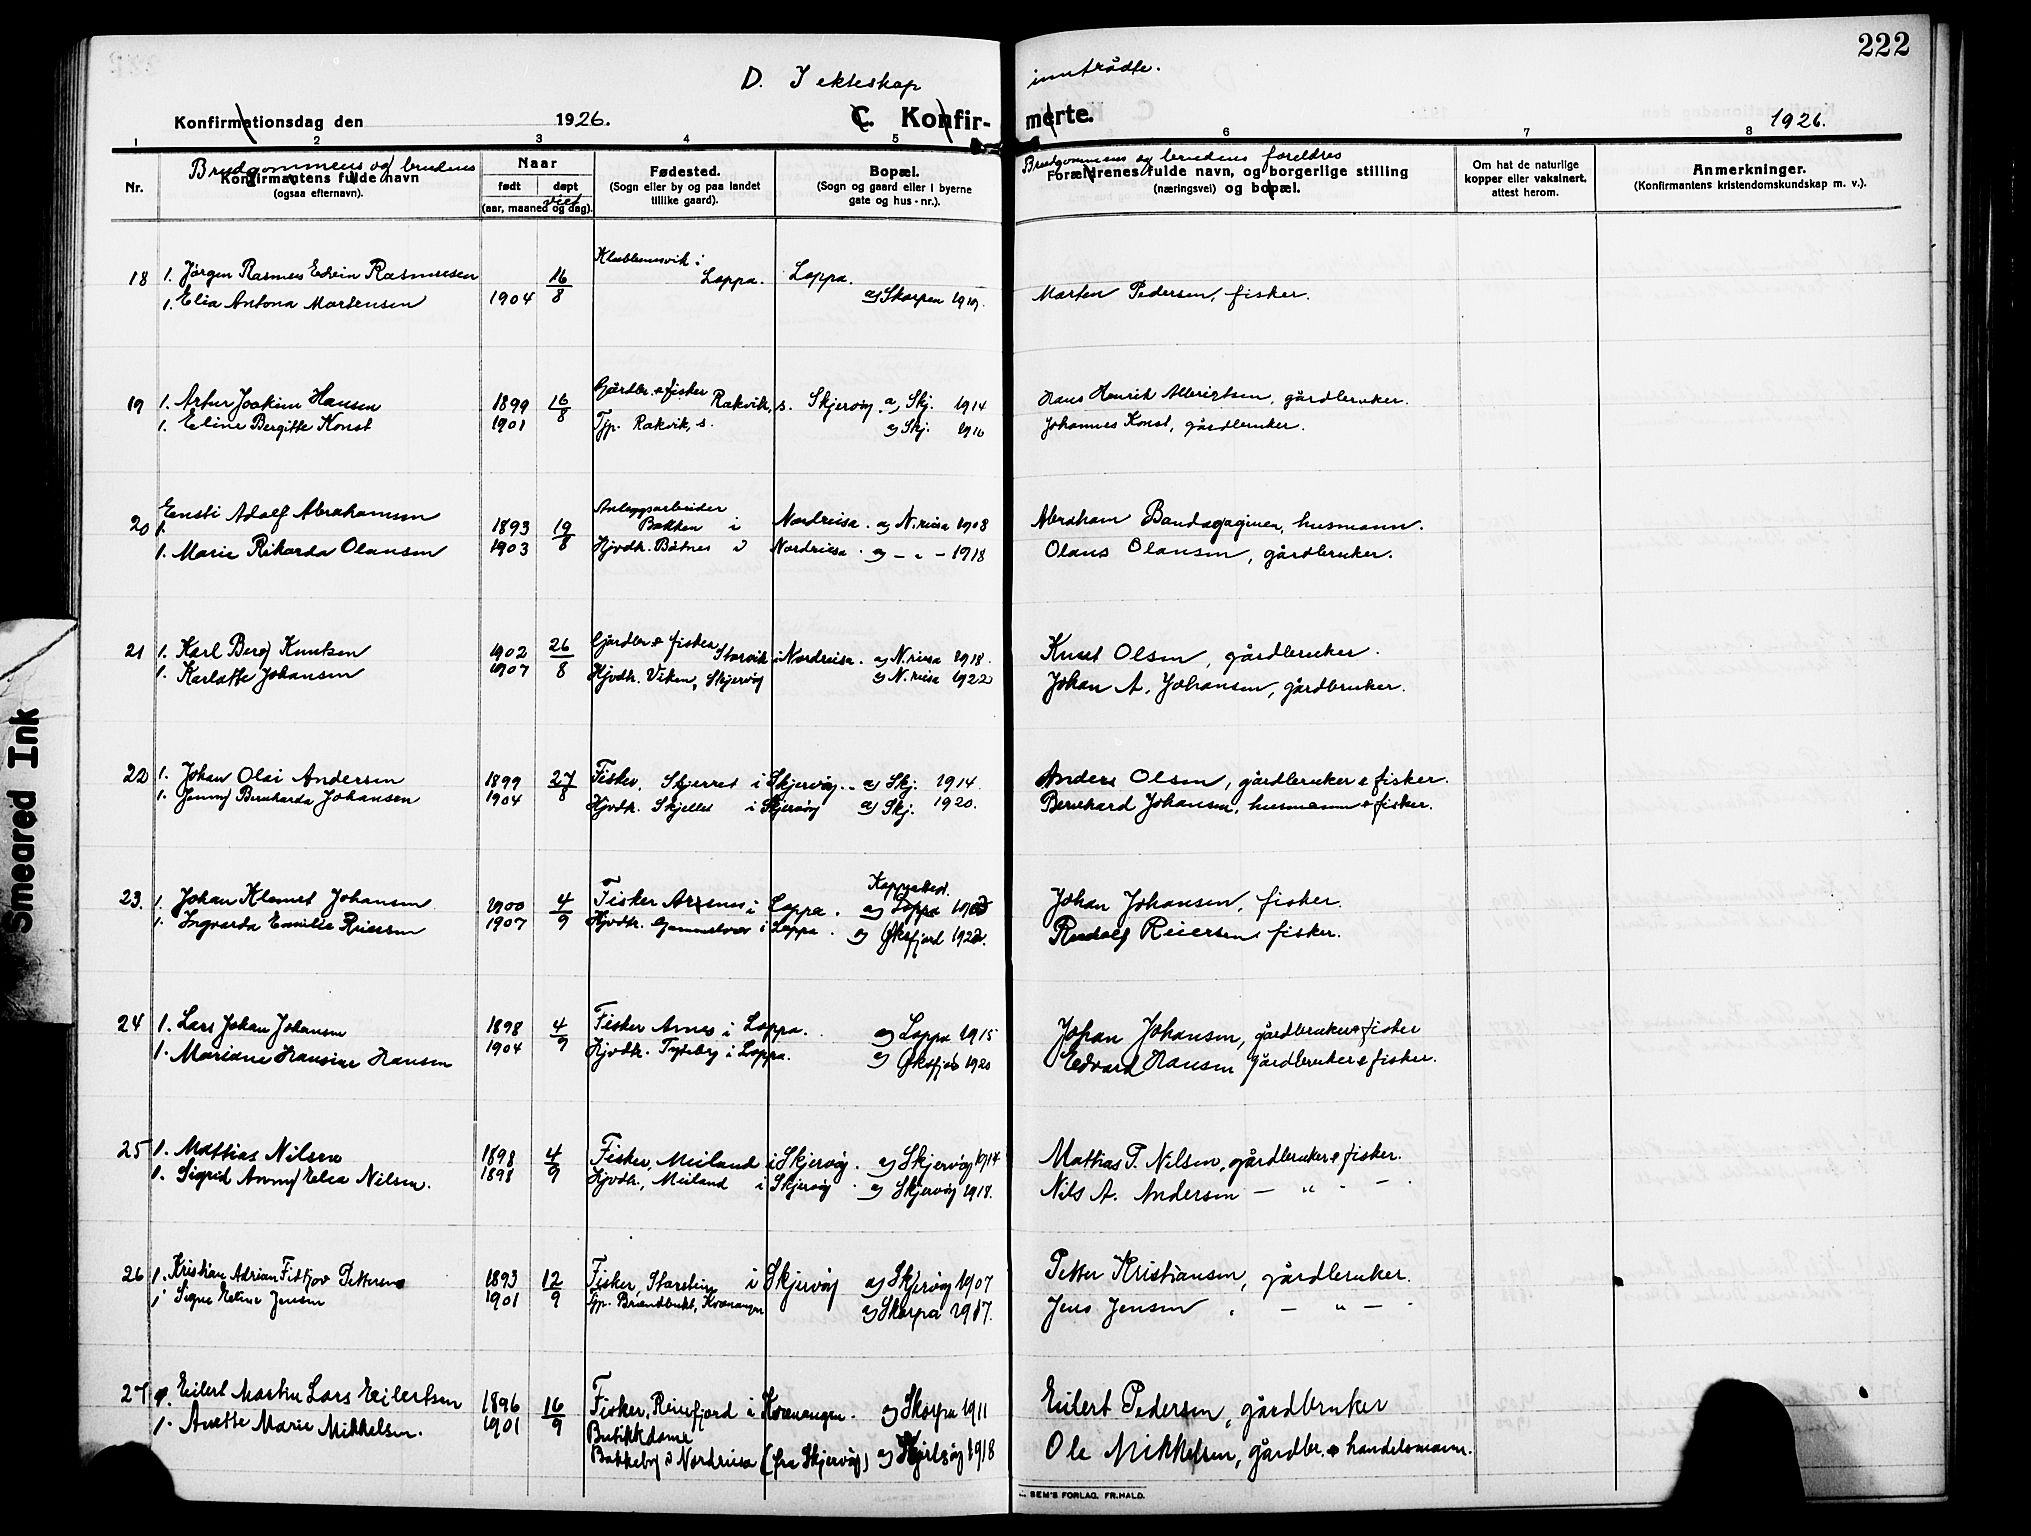 222
D. I ekteskap inntrådte.
Konfirmationsdag den 1926. C. Konfirmerte. 1926.
1 2 3 4 5 6 7 8
Brudgommens og brudens
Brudgommens og brudens foreldres
Nr.
Konfirmantens fulde navn
(ogsaa efternavn).
Naar
født døpt
viet
(aar, maaned og dag).
Fødested.
(Sogn eller by og paa landet
tillike gaard).
Bopæl.
(Sogn og gaard eller i byerne
gate og hus-nr.).
Forældrenes fulde navn, og borgerlige stilling
(næringsvei) og bopæl.
Om hat de naturlige
kopper eller vaksinert,
attest herom.
Anmerkninger.
(Konfirmantens kristendomskundskap m. v.).
18 1. Jørgen Rasmus Edvin Rasmussen 16/8 i Loppa. Loppa.
1. Elia Antona Mortensen 1904 a) Skorpen 1919. Morten Pedersen, fisker.
19 1. Artur Joakim Hansen 1899 16/8 Gårdbr. & fisker Rakvik, s. Skjervøy. a) Skj. 1914 Hans Henrik Albrigtsen, gårdbruker.
1. Eline Bergitte Konst 1901 Tjp. Rakvik, s. a) Skj. 1916 Johannes Konst, gårdbruker.
20 1. Ensti Adolf Abrahamsen 1893 19/8 Anleggsarbeider Bakken i Nordreisa. a) N.reisa 1908 Abraham husmann.
1. Marie Rikarda Olausen 1903 Hjvdt. Båtnes i Nordreisa. a) — „ — 1918 Olaus Olausen, gårdbruker.
21 1. Karl Berg Knutsen 1902 26/8 Gårdbr. & fisker Storvik i Nordreisa. a) N.reisa 1918. Knut Olsen, gårdbruker.
1. Karlotte Johansen 1907 Hjvdt. Viken, Skjervøy a) N.reisa 1922 Johan A. Johansen, gårdbruker.
22 1. Johan Olai Andersen 1899 27/8 Fisker, i Skjervøy. a) Skj. 1914. Anders Olsen, gårdbruker & fisker.
1. Jenny Bernharda Johansen 1904 Hjvdt. Skjellet i Skjervøy a) Skj. 1920. Bernhard Johansen, husmann & fisker.
23. 1. Johan Klemet Johansen 1900 4/9 Fisker Arnes i Loppa. a) Loppa Johan Johansen, fisker.
1. Ingvarda Emilie Reiersen 1907 Hjvdt. Gammelvær i Loppa. a) Øksfjord 1922. Rudolf Reiersen, fisker.
24 1. Lars Johan Johansen 1898 4/9 Fisker Arnes i Loppa. a) Loppa 1915 Johan Johansen, gårdbruker & fisker
1. Mariane Hansine Hansen 1904 Hjvdt. Tyteby i Loppa. a) Øksfjord 1920 Edvard Hansen gårdbruker & fisker.
25 1. Mathias Nilsen 1898 4/9 Fisker, Meiland i Skjervøy. a) Skjervøy 1914 Mathias P. Nilsen, gårdbruker & fisker.
1. Sigrid Anny Elea Nilsen. 1898 Hjvdt., Meiland i Skjervøy. a) Skjervøy 1918. Nils A. Andersen — „ — —
26 1. Kristian Adrian Fidtjov Pettersen 1893 12/9 Fisker, Storstein i Skjervøy a) Skjervøy 1907 Petter Kristiansen, gårdbruker.
1. Signe Eline Jensen 1901 Tjp. Brændbukt, Kvænangen a) Skorpa 1917. Jens Jensen, — „ —
27 1. Eilert Martin Lars Eilertsen 1896 16/9 Fisker, Reinfjord i Kvænangen. a) Skorpa 1911 Eilert Pedersen, gårdbruker
1. Anette Marie Mikkelsen. 1901 Butikkdame
Bakkeby i Nordreisa (fra Skjervøy) a) 1918 Ole Mikkelsen, gårdbr. & handelsmann.
SEM'S FORLAG, FR.HALD.
Smeared Ink